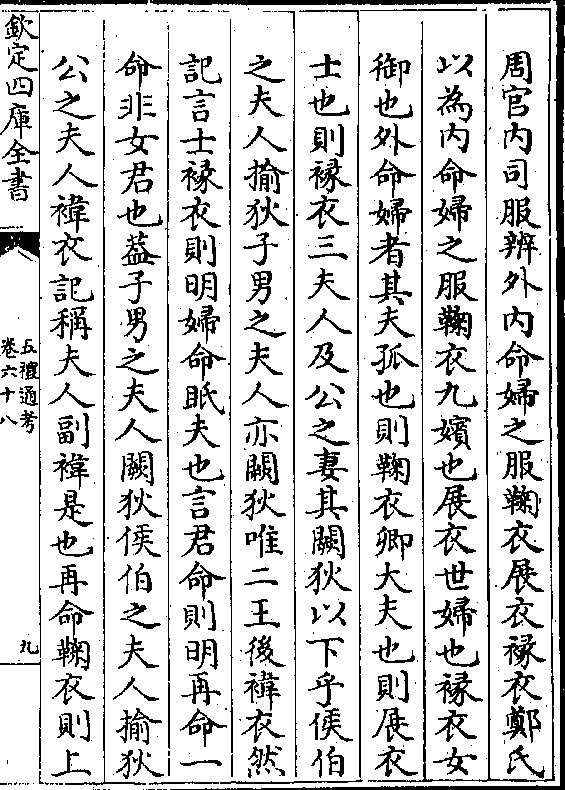 周官内司服辨外内命婦之服鞠衣展衣褖衣鄭氏
以為内命婦之服鞠衣九嬪也展衣世婦也褖衣女
御也外命婦者其夫孤也則鞠衣卿大夫也則展衣
士也則褖衣三夫人及公之妻其闕狄以下乎侯伯
之夫人揄狄子男之夫人亦闕狄唯二王後褘衣然
記言士褖衣則明婦命眡夫也言君命則明再命一
命非女君也葢子男之夫人闕狄侯伯之夫人揄狄
公之夫人褘衣記稱夫人副褘是也再命鞠衣則上
欽定四庫全書
五禮通考
卷六十八
九